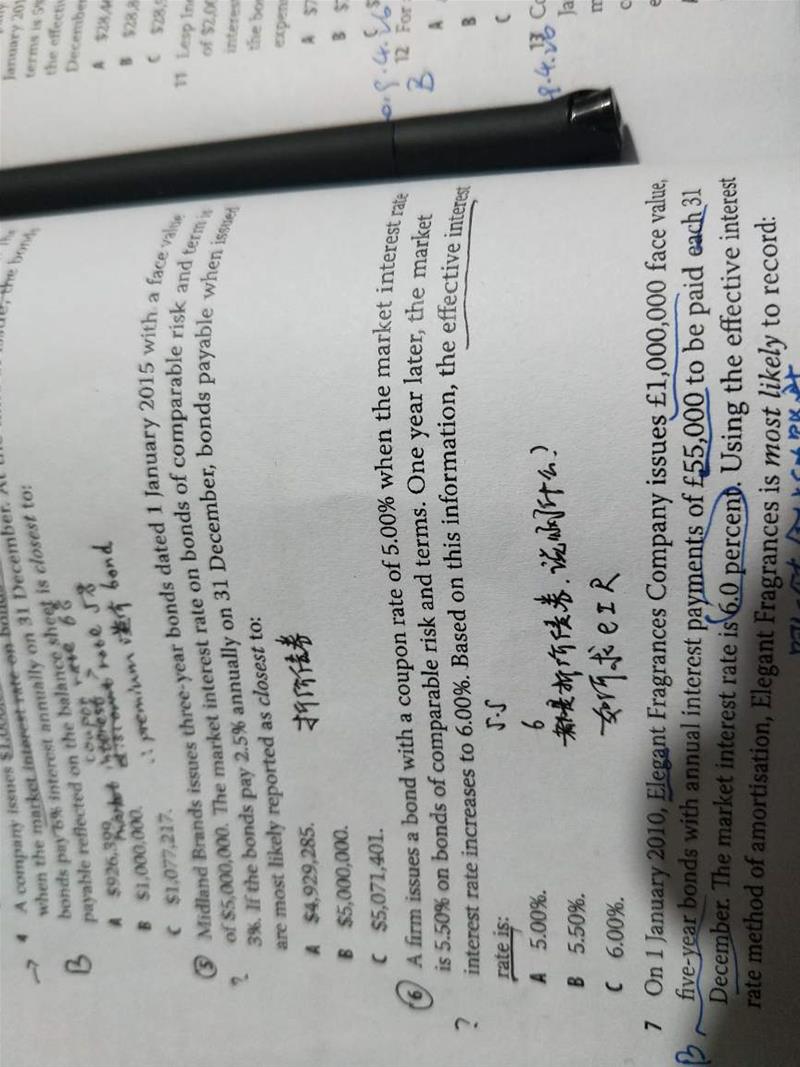 January 201
terms is 5%
the effectiv
December
A $28,4
B $28,8
C $28,5
11 Lesp Inc
of $2,00
interest
the bo
expens
A $7
B $
12 For
B
A
B
C
13 Co
Ja
m
c
e
8.4.26
4 A company issues $1,000
when the market interest rate on bonds
bonds pay 6% interest annually on 31 December. At the
payable reflected on the balance sheet is closest to:
B
A $926,399.
B $1,000,000.
C $1,077,217.
coupon rate 6%
market interest rate 5%
∴ premium 溢价 bond
5 Midland Brands issues three-year bonds dated 1 January 2015 with a face value
of $5,000,000. The market interest rate on bonds of comparable risk and term is
3%. If the bonds pay 2.5% annually on 31 December, bonds payable when issued
are most likely reported as closest to:
?
A $4,929,285.
B $5,000,000.
C $5,071,401.
折价债券
6 A firm issues a bond with a coupon rate of 5.00% when the market interest rate
is 5.50% on bonds of comparable risk and terms. One year later, the market
interest rate increases to 6.00%. Based on this information, the effective interest
rate is:
?
5.5
A 5.00%.
B 5.50%.
C 6.00%.
6
都是折价债券.说明什么?
如何求 e I R
7 On 1 January 2010, Elegant Fragrances Company issues £1,000,000 face value,
five-year bonds with annual interest payments of £55,000 to be paid each 31
December. The market interest rate is 6.0 percent. Using the effective interest
rate method of amortisation, Elegant Fragrances is most likely to record:
B